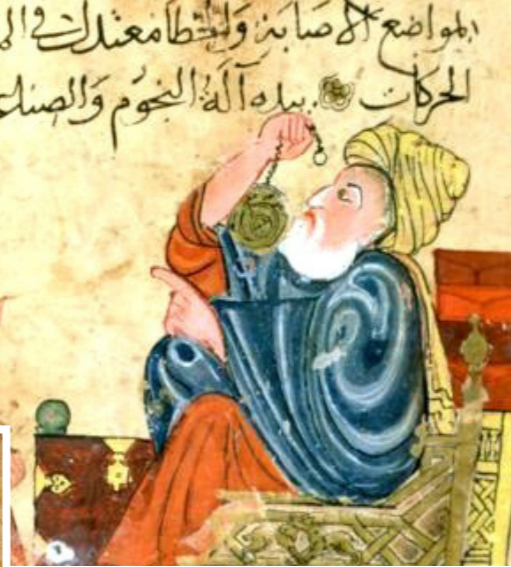 المواضع الاصابة والخطا معتدلت في ال
الحركات بيده آلة النجوم والصنا